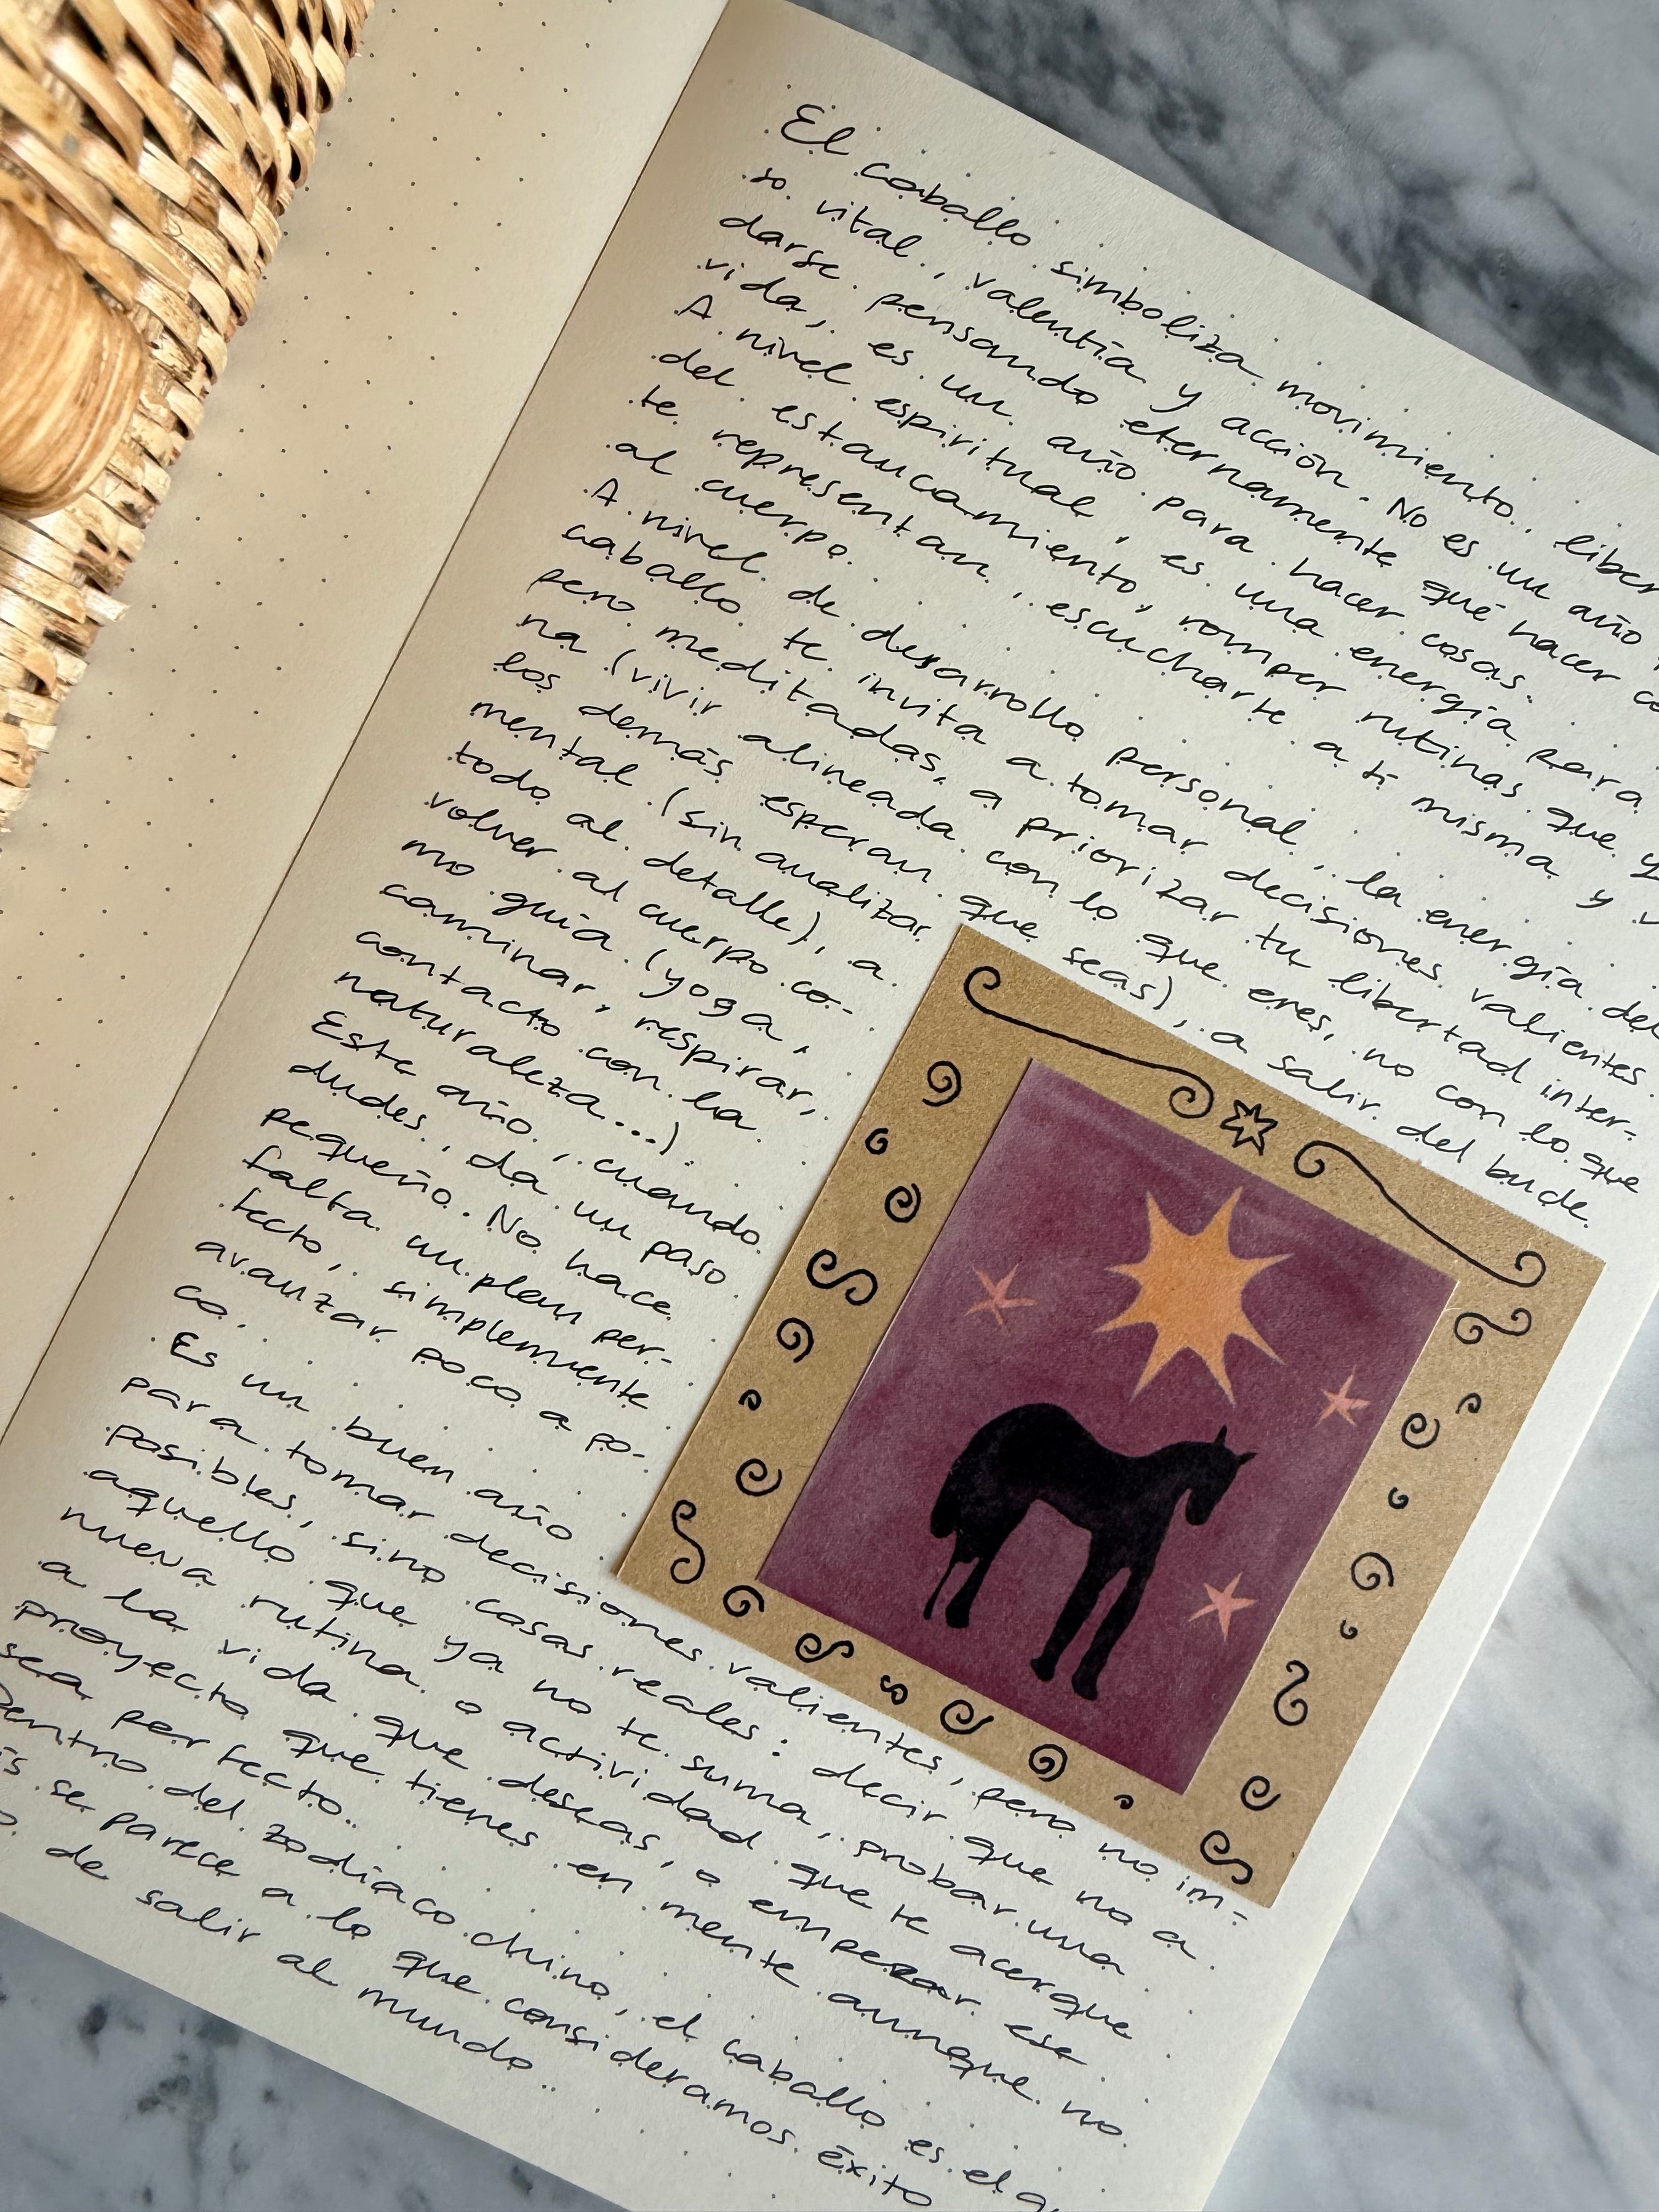 El caballo simboliza movimiento, liber
so vital, valentía y acción. No es un año
darse pensando eternamente qué hacer co
vida, es un año para hacer cosas.
A nivel espiritual, es una energía para
del estancamiento, romper rutinas que y
te representan, escucharte a ti misma y v
al cuerpo.
A nivel de desarrollo personal, la energía del
caballo te invita a tomar decisiones valientes
pero meditadas, a priorizar tu libertad inter-
na (vivir alineada con lo que eres, no con lo que
los demás esperan que seas), a salir del bucle
mental (sin analizar
todo al detalle), a
volver al cuerpo co-
mo guía (yoga,
caminar, respirar,
contacto con la
naturaleza...)
Este año, cuando
dudes, da un paso
pequeño. No hace
falta un plan per-
fecto, simplemente
avanzar poco a po-
co.
Es un buen año
para tomar decisiones valientes, pero no im-
posibles, sino cosas reales: decir que no a
aquello que ya no te suma, probar una
nueva rutina o actividad que te acerque
a la vida que deseas, o empezar ese
proyecto que tienes en mente aunque no
sea perfecto.
Dentro del zodíaco chino, el caballo es el q
ás se parece a lo que consideramos éxito
o de salir al mundo.